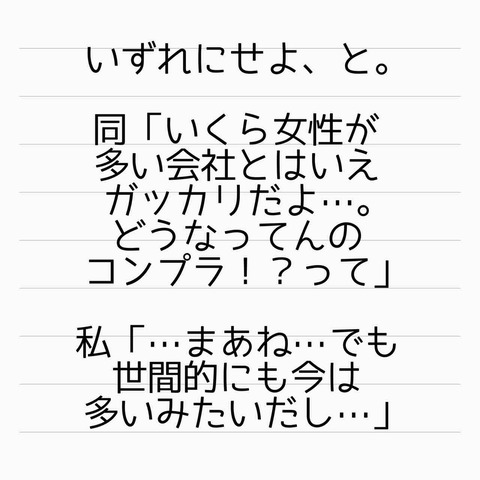 いずれにせよ、と。
同「いくら女性が
多い会社とはいえ
ガッカリだよ…。
どうなってんの
コンプラ！？って」
私「…まあね…でも
世間的にも今は
多いみたいだし…」